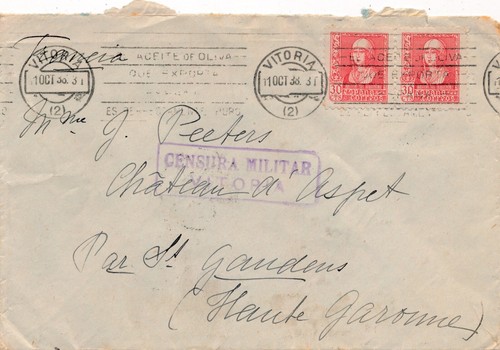 Francia
VITORIA
11OCT 38. 3T
(2)
ACEITE DE OLIVA
QUE EXPORTA
VITORIA
11OCT 38. 3T
(2)
ACEITE DE OLIVA
QUE EXPORTA
30 30
CORREOS CORREOS
Mme J. Peeters
CENSURA MILITAR
VITORIA
Château d'Aspet
Par St Gaudens
(Haute Garonne)